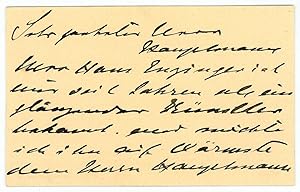 Sehr geehrter Herr
Hauptmann
Herr Hans Enzinger ist
mir seit Jahren als ein
glänzender Künstler
bekannt. und möchte
ich ihn auf Wärmste
dem Herrn Hauptmann